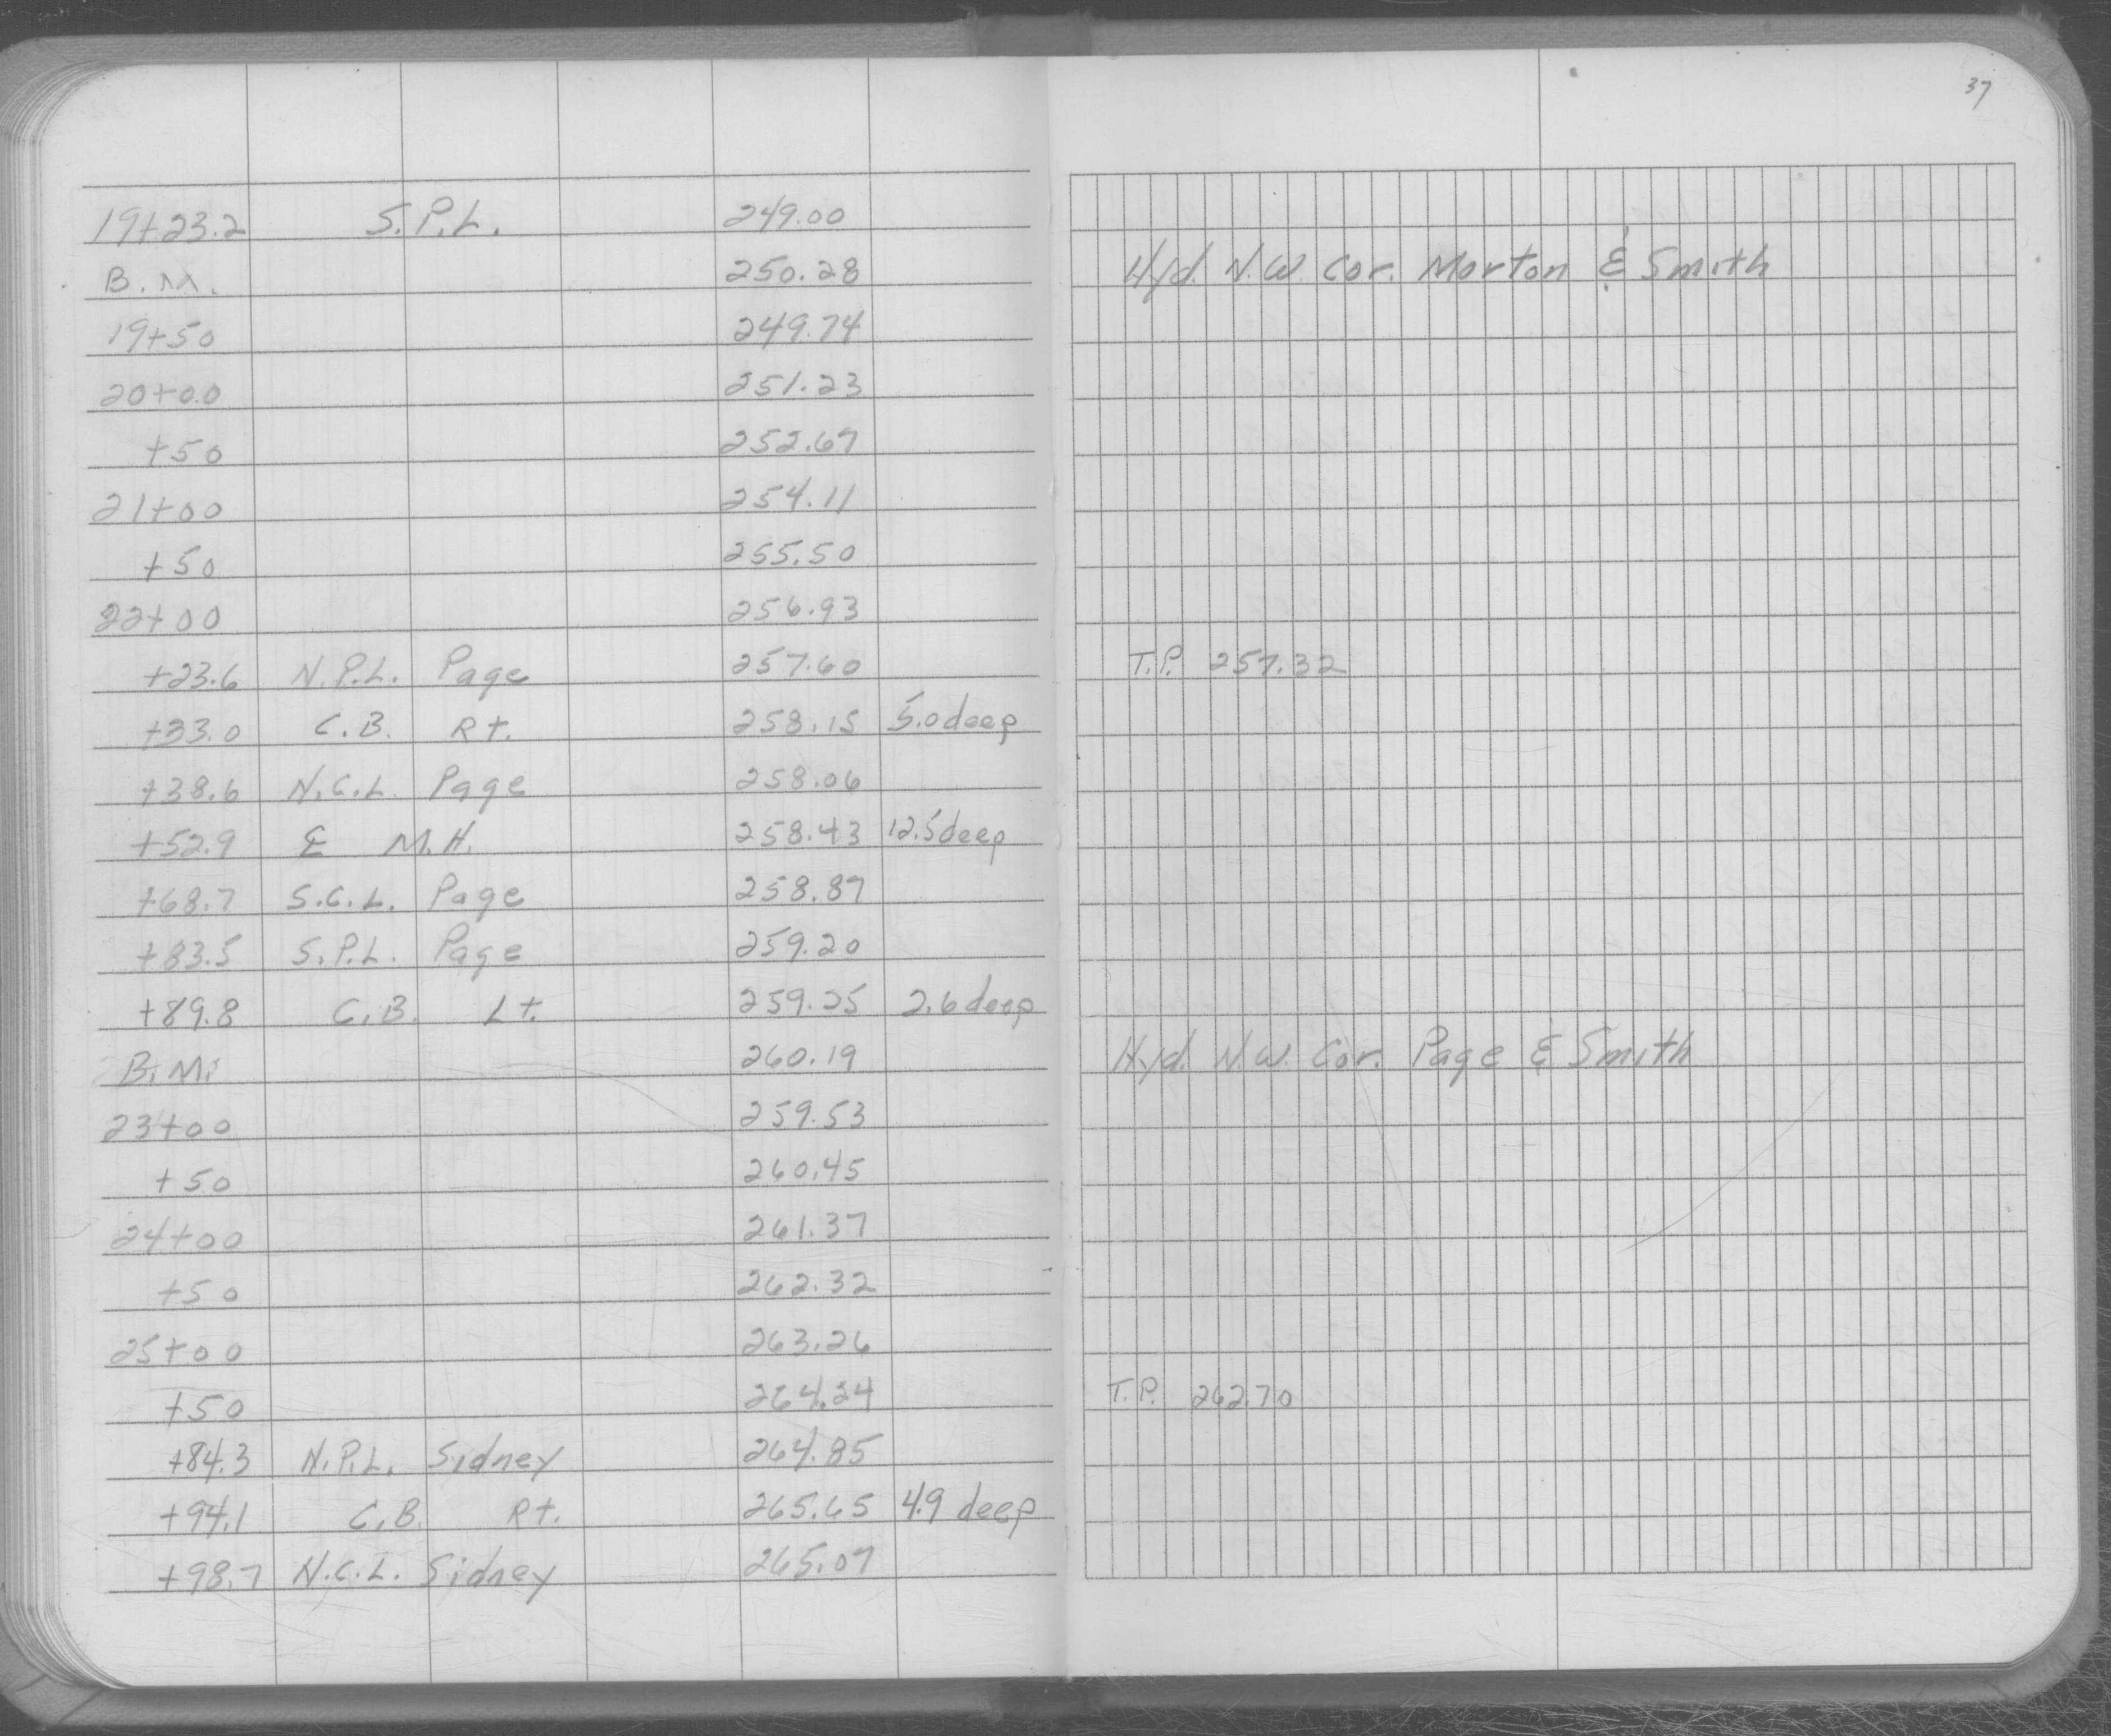 37
19+23.2 S.P.L. 249.00
B.M. 250.28 Hyd. N.W. Cor. Morton & Smith
19+50 249.74
20+00 251.23
+50 252.67
21+00 254.11
+50 255.50
22+00 256.93
+23.6 N.P.L. Page 257.60 T.P. 257.32
+33.0 C.B. Rt. 258.15 5.0 deep
+38.6 N.C.L. Page 258.06
+52.9 & M.H. 258.43 12.5 deep
+68.7 S.C.L. Page 258.87
+83.5 S.P.L. Page 259.20
+89.8 C.B. Lt. 259.25 2.6 deep
B.M. 260.19 Hyd. N.W. Cor. Page & Smith
23+00 259.53
+50 260.45
24+00 261.37
+50 262.32
25+00 263.26
+50 264.24 T.P. 262.70
+84.3 N.P.L. Sidney 264.85
+94.1 C.B. Rt. 265.65 4.9 deep
+98.7 N.C.L. Sidney 265.07